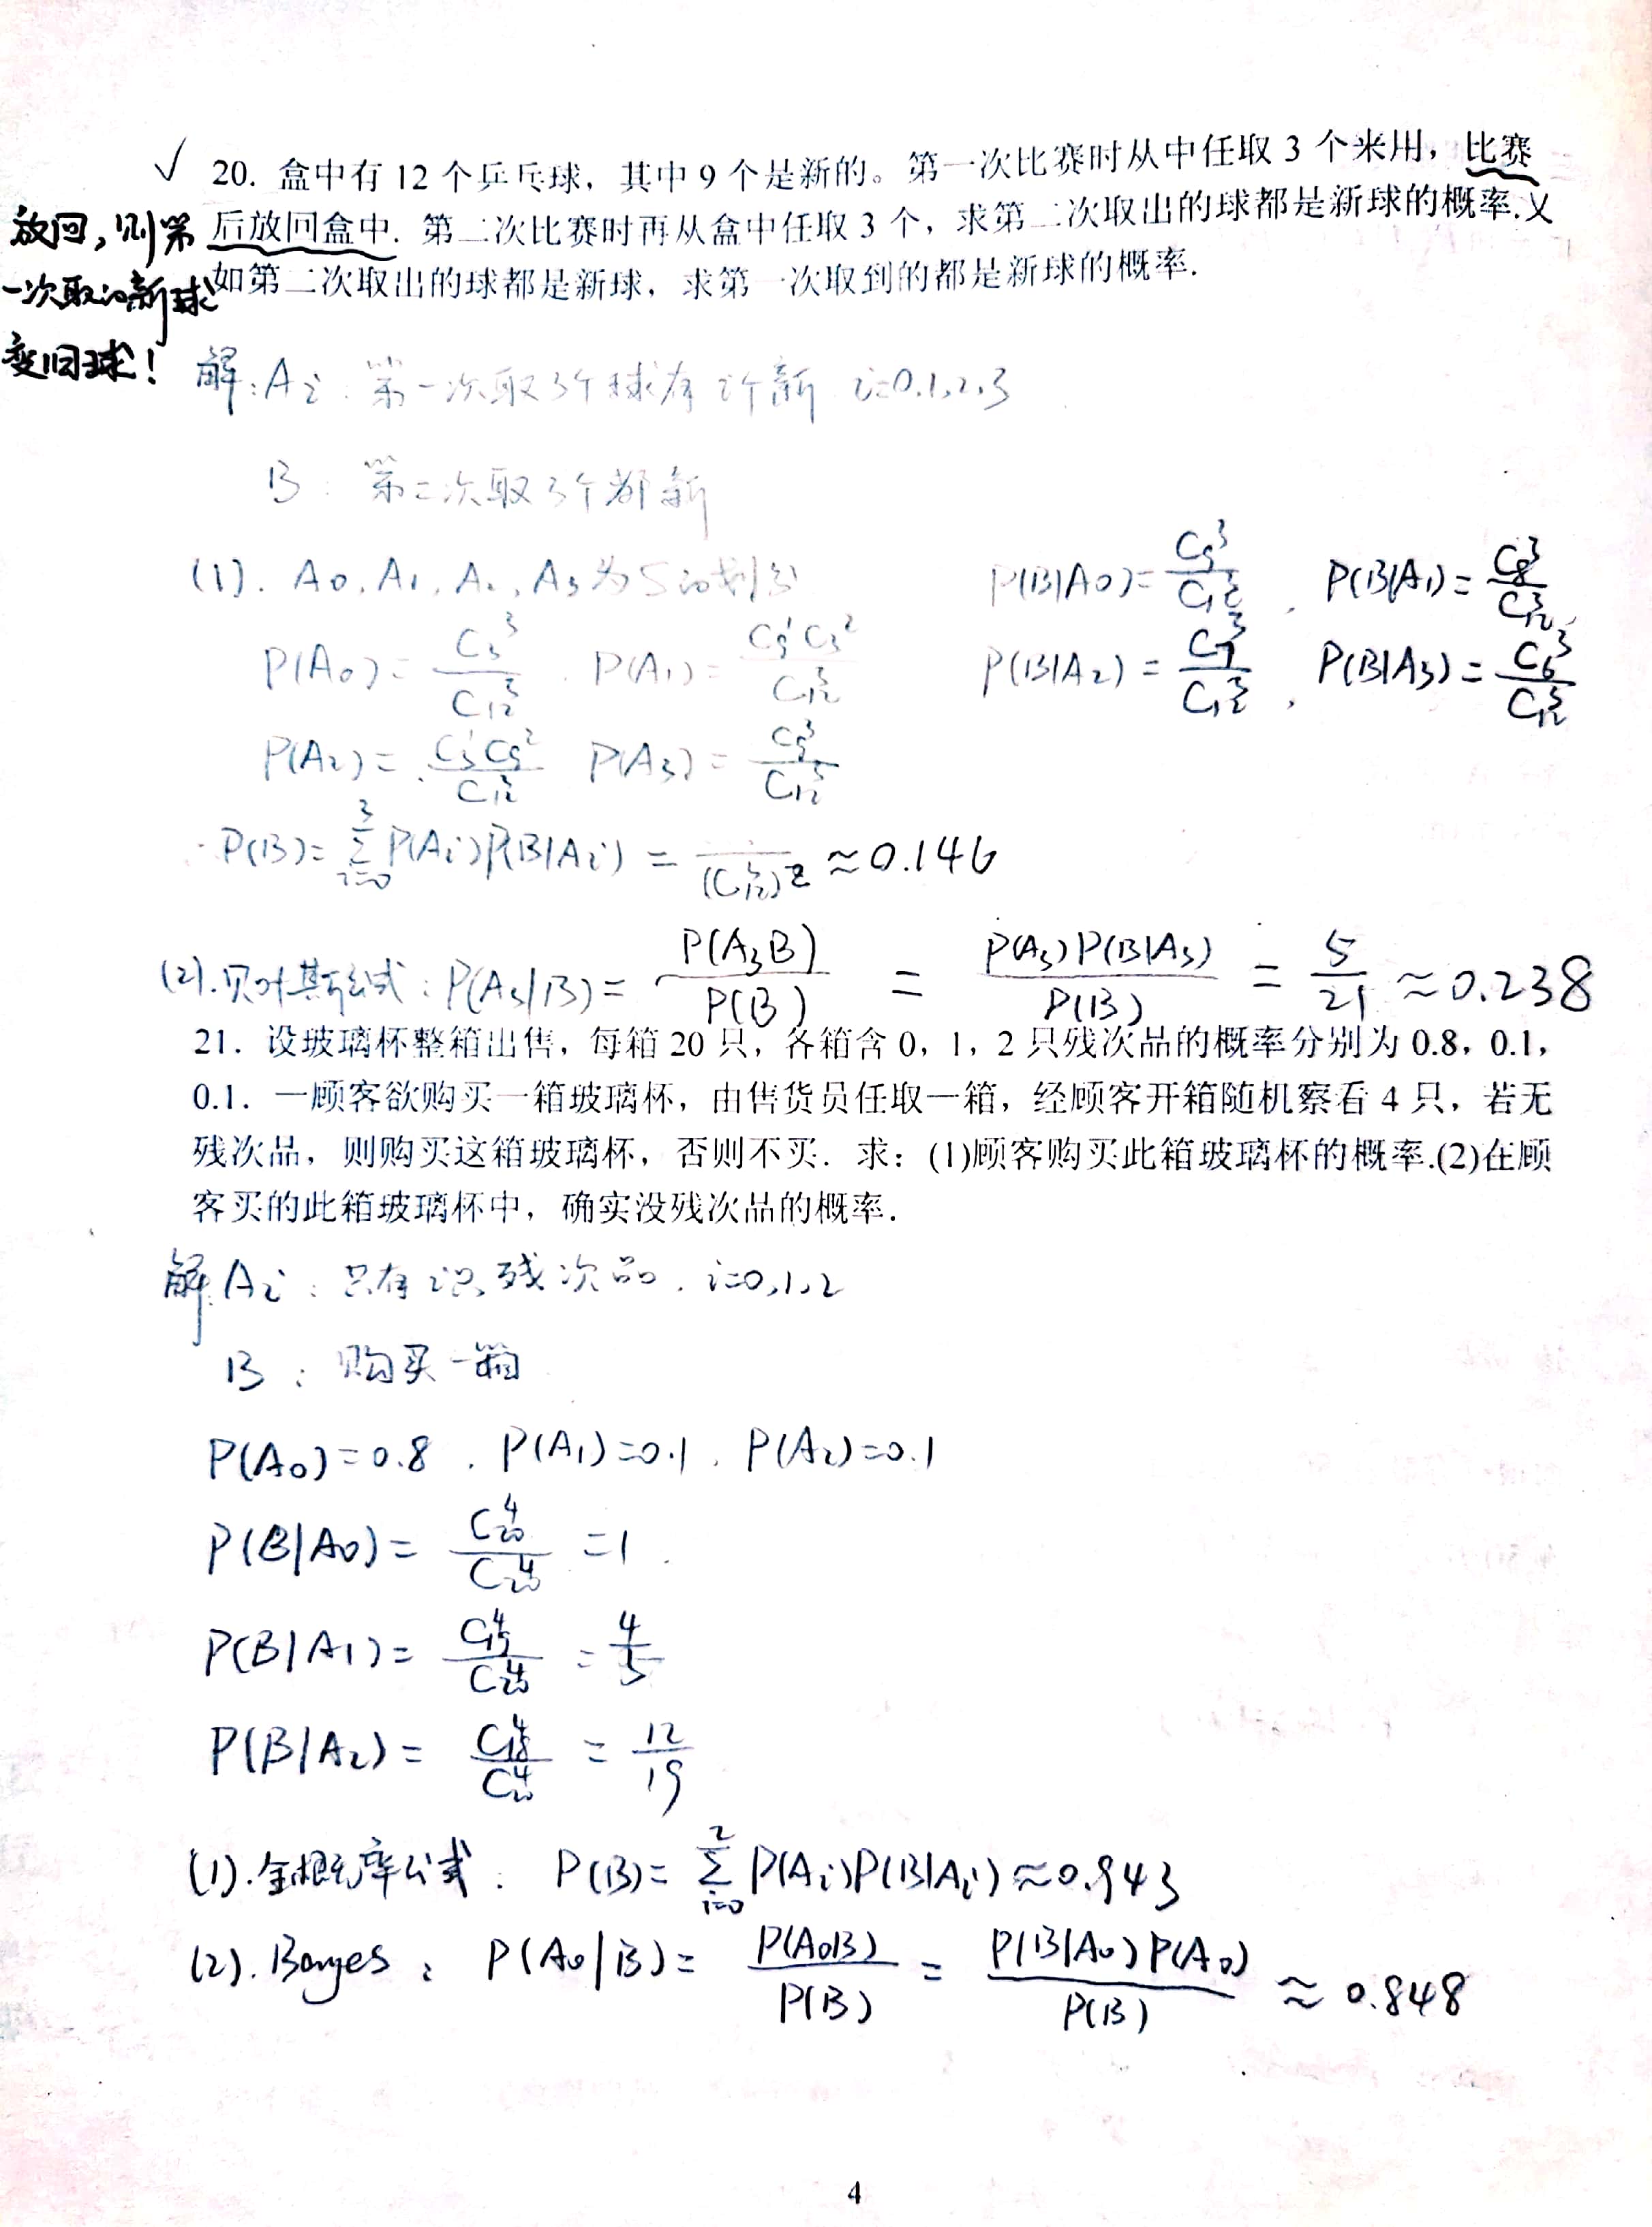 √ 20. 盒中有 12 个乒乓球，其中 9 个是新的。第一次比赛时从中任取 3 个来用，比赛
后放回盒中. 第二次比赛时再从盒中任取 3 个，求第二次取出的球都是新球的概率.又
如第二次取出的球都是新球，求第一次取到的都是新球的概率.
放回，则第
一次取的新球
变旧球！
解：Ai：第一次取3个球有i个新 i=0.1.2.3
B：第二次取3个都新
(1). A0, A1, A2, A3为S的划分
P(A0)=C3^3/C12^3 . P(A1)=C9^1C3^2/C12^3
P(A2)=C3^1C9^2/C12^3 P(A3)=C9^3/C12^3
P(B|A0)=C9^3/C12^3 , P(B|A1)=C8^3/C12^3,
P(B|A2)=C7^3/C12^3 , P(B|A3)=C6^3/C12^3
P(B)=∑_{i=0}^{3}P(Ai)P(B|Ai) = /(C12^3)^2 ≈0.146
(2).贝叶斯公式：P(A3|B)=P(A3B)/P(B) = P(A3)P(B|A3)/P(B) = 5/21 ≈0.238
21. 设玻璃杯整箱出售，每箱 20 只，各箱含 0，1，2 只残次品的概率分别为 0.8，0.1，
0.1. 一顾客欲购买一箱玻璃杯，由售货员任取一箱，经顾客开箱随机察看 4 只，若无
残次品，则购买这箱玻璃杯，否则不买. 求：(1)顾客购买此箱玻璃杯的概率.(2)在顾
客买的此箱玻璃杯中，确实没残次品的概率.
解：Ai：只有i只残次品. i=0,1,2
B：购买一箱
P(A0)=0.8 . P(A1)=0.1 . P(A2)=0.1
P(B|A0)=C20^4/C20^4 =1 .
P(B|A1)=C19^4/C20^4 =4/5
P(B|A2)=C18^4/C20^4 =12/19
(1).全概率公式：P(B)=∑_{i=0}^{2}P(Ai)P(B|Ai)≈0.943
(2). Bayes：P(A0|B)=P(A0B)/P(B) = P(B|A0)P(A0)/P(B) ≈ 0.848
4